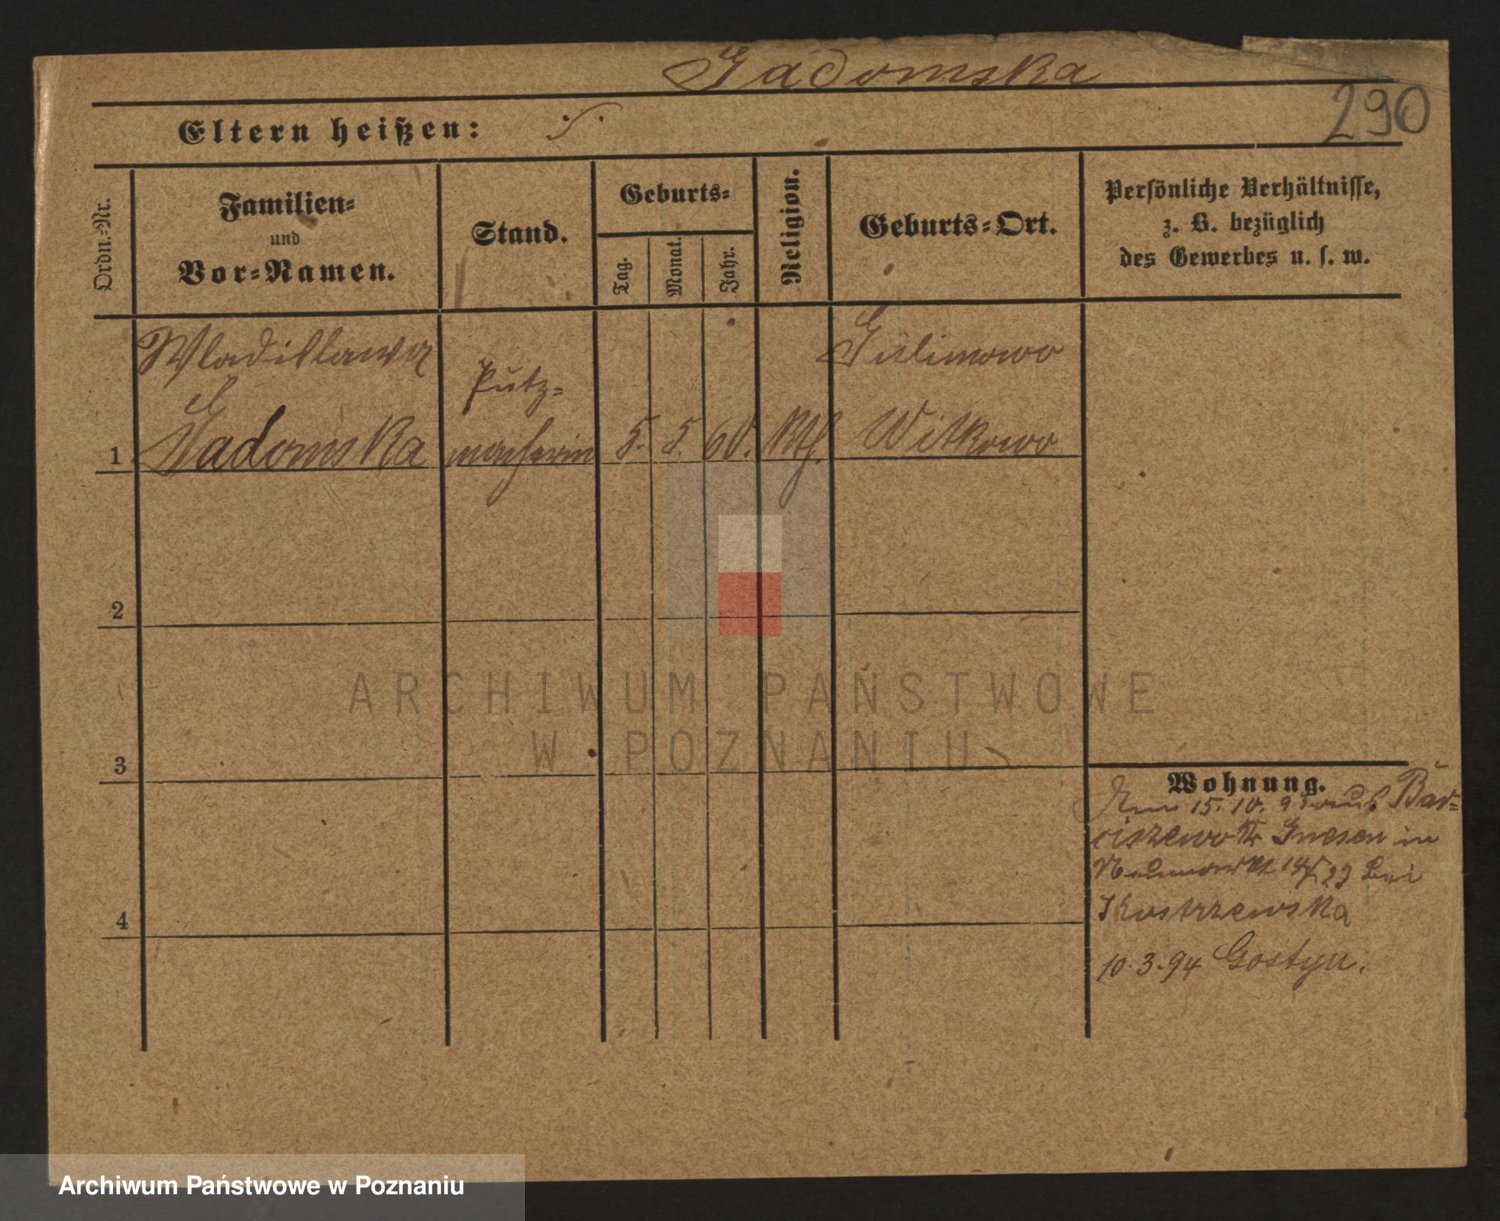 Gadomska
290
Eltern heißen: ·/·
Ordn.-Nr.
Familien-
und
Vor-Namen.
Stand.
Geburts-
Tag.
Monat.
Jahr.
Religion.
Geburts-Ort.
Persönliche Verhältnisse,
z. B. bezüglich
des Gewerbes u. s. w.
Wladislawa
Gadomska
Putz-
macherin
5. 5. 60. Kth.
Gulimowo
Witkowo
1
2
3
4
Wohnung.
15. 10. aus
Gnesen in
bei
Kostrzewska
10.3.94 Gostyn.
ARCHIWUM PAŃSTWOWE
W POZNANIU
Archiwum Państwowe w Poznaniu